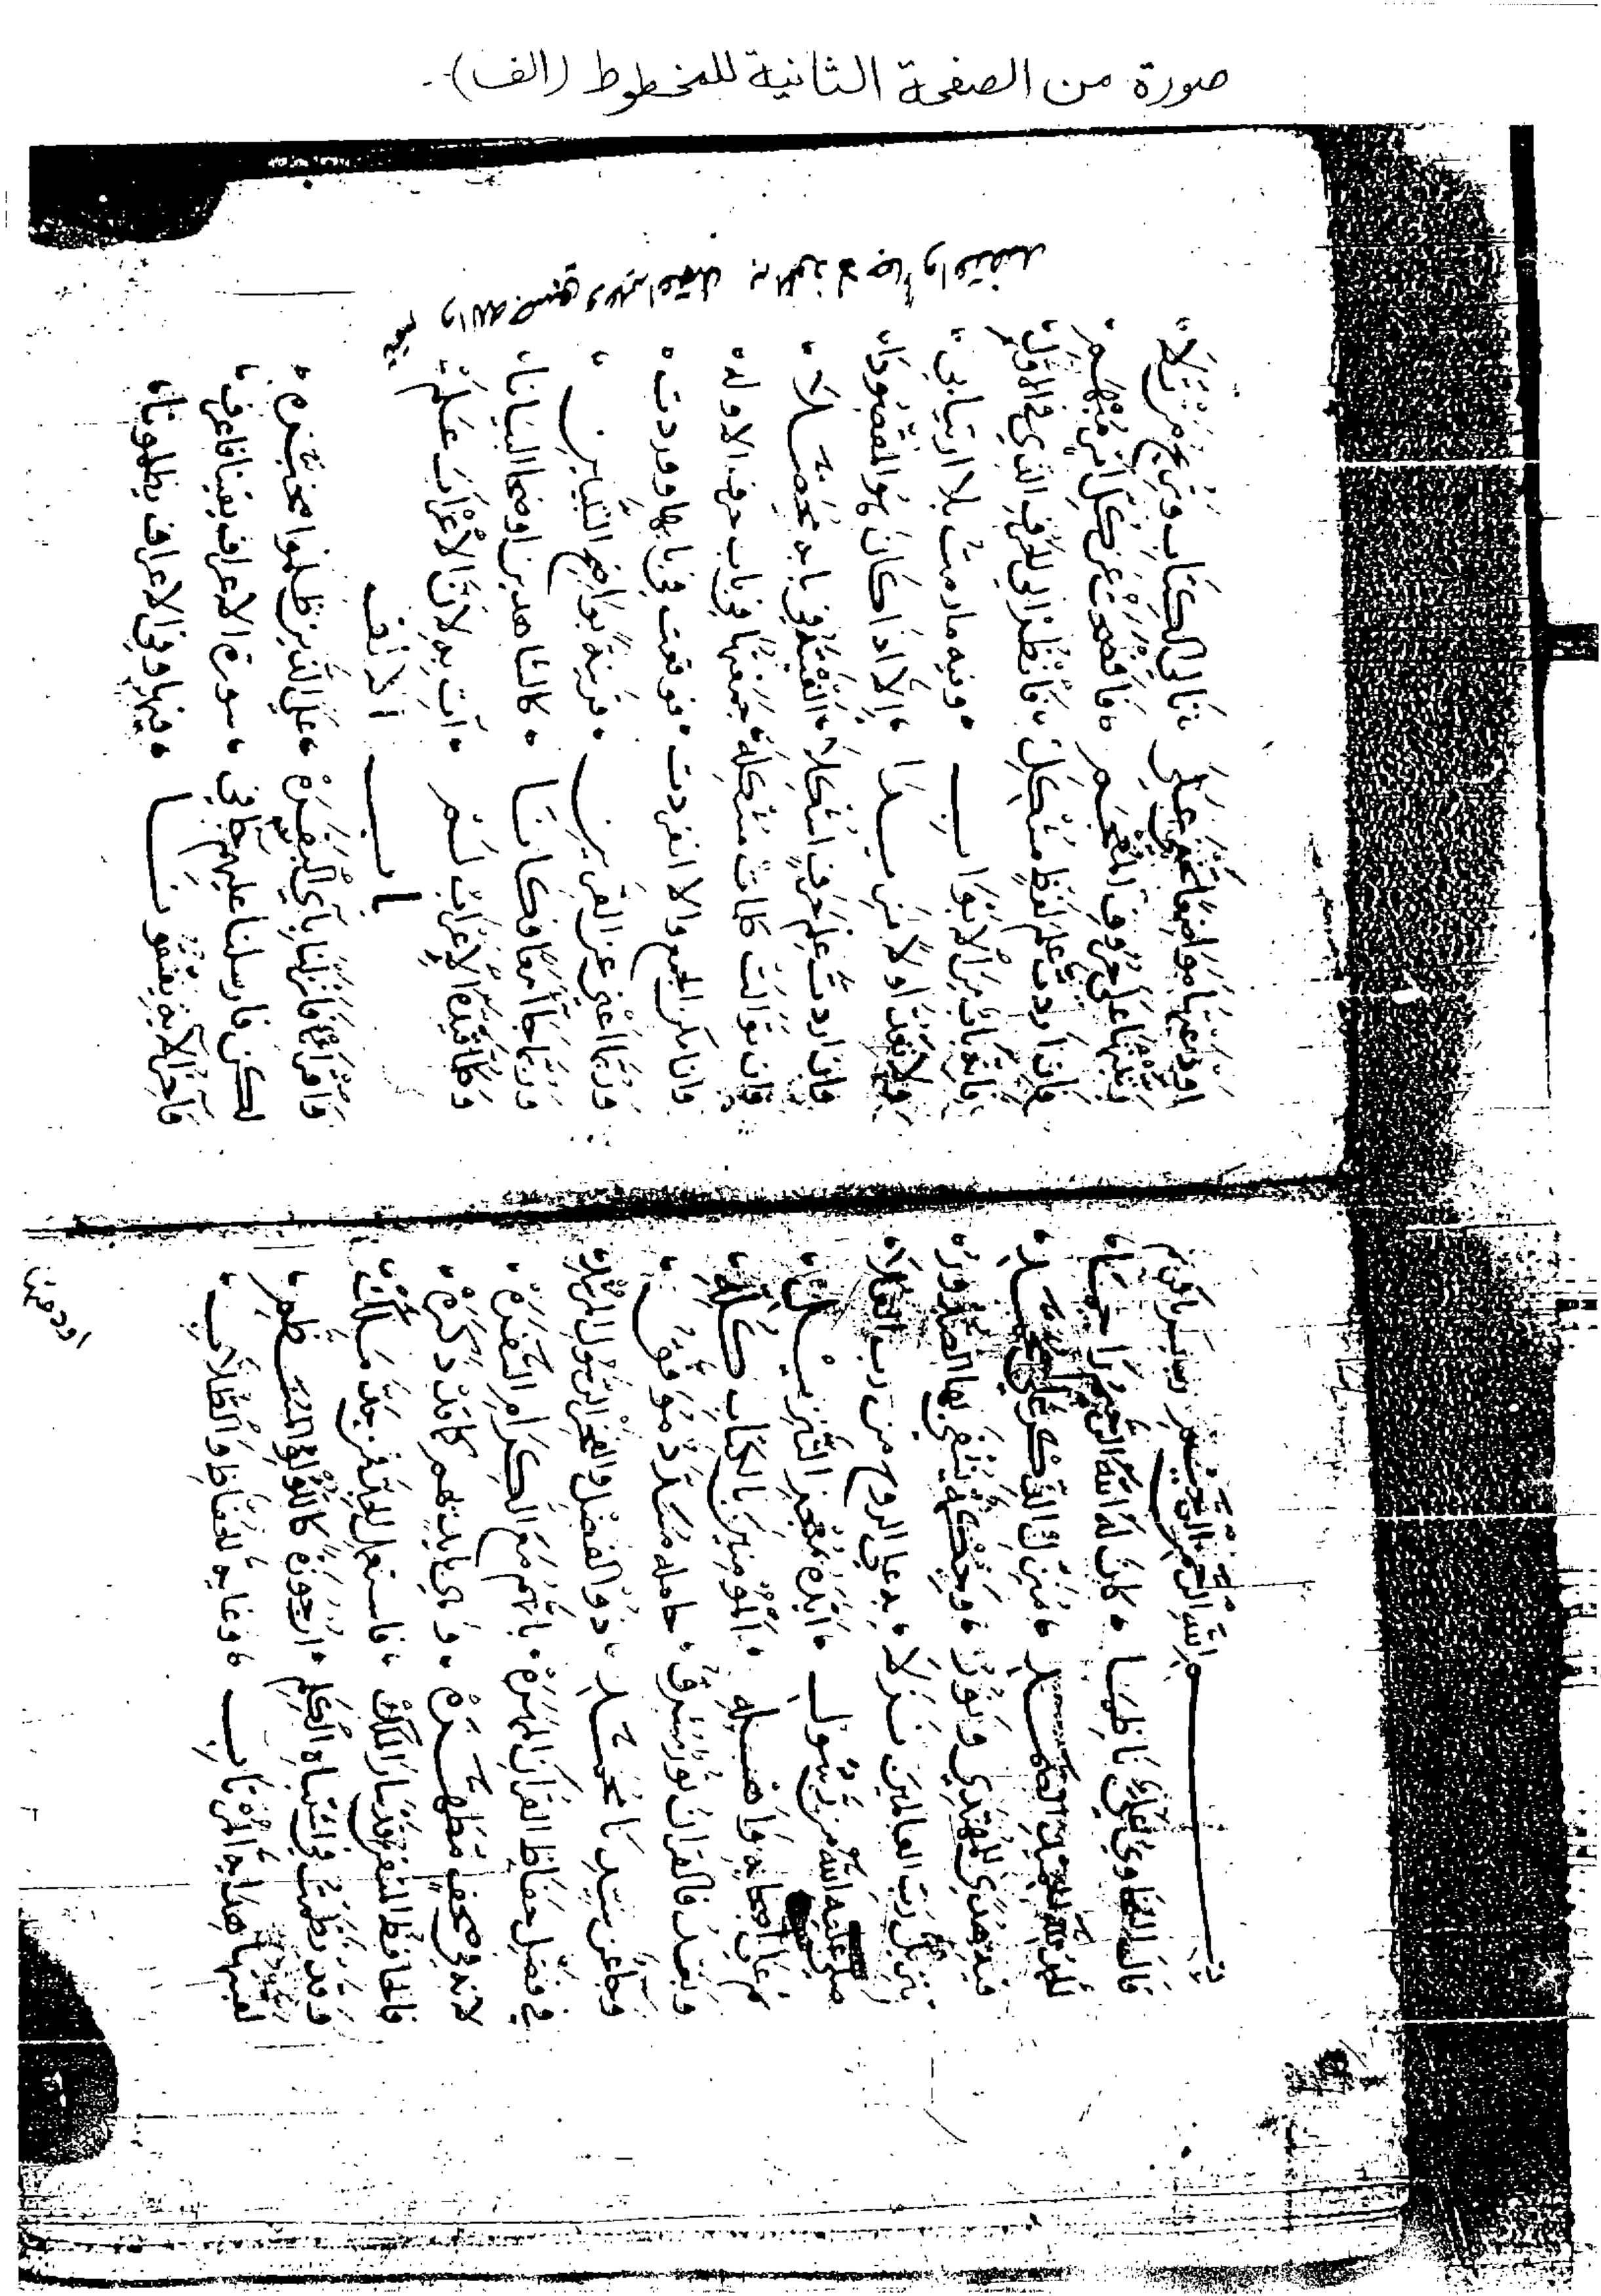 صورة من الصفحة الثانية للمخطوط (الف).
بسم الله الرحمن الرحيم رب يسر يا كريم
قال السخاوي علي ناظما كان له الله الرحيم راحما
الحمد لله الحميد الصمد منزل الذكر على محمد
فيه هدى للمهتدي ونور وحكمة تشفى بها الصدور
تنزيل رب العالمين نزلا به على الروح من رب العلا
صلى عليه الله من رسول ايده بمعجز التنزيل
ثم على اصحابه واهله المؤمنين بالكتاب كله
وبعد فالقران نور مشرق حامله مسدد موفق
وجاء عن سيدنا محمد ذو الفضل والفخر الرسول المرشد
في فضل حفاظ القران المهره بانهم مع الكرام السفره
لانه في صحف مطهره وهي بايديهم كما قد ذكره
فالحافظ المتقن قد سارا الملك فاستعمل الجد فمن جد ملك
وقد نظمت في اشتباه الكلم ارجوزة كاللؤلؤ المنظم
لقبتها هداية المرتاب وغاية الحفاظ والطلاب
اودعتها
اودعتها مواضعا تخفى على تالي الكتاب وتريح من تلا
رتبتها على حروف المعجم فافصحت عن كل امر مبهم
فاذا اردت علم لفظ مشكل فانظر الى الحرف الذي في الاول
فانه باب من الابواب وفيه ما رمت بلا ارتياب
ولا تعد اولا مزيدا الا اذا كان هو المقصودا
فان اردت علم حرف اشكلا الفيته في بابه محصلا
وان توالت كلمات مشكله جمعتها في باب حرف الاوله
وان امكن الجمع والا انفردت فوقعت في بابها ووردت
وربما اغنى عن القرين قرينه بواضح التبيين
وربما جاآ معا فكانا كالشاهدين اوضحا البيانا
وكلما قيده الاعراب لم آت به لان الاعراب علم
باب الالف
واقرأ فانزلنا بآي البقره على الذين ظلموا محبره
لكن فارسلنا عليهم في سورة الاعراف يقينا فاعرف
وآخر الآية يفسقونا فيها وفي الاعراف يظلمونا